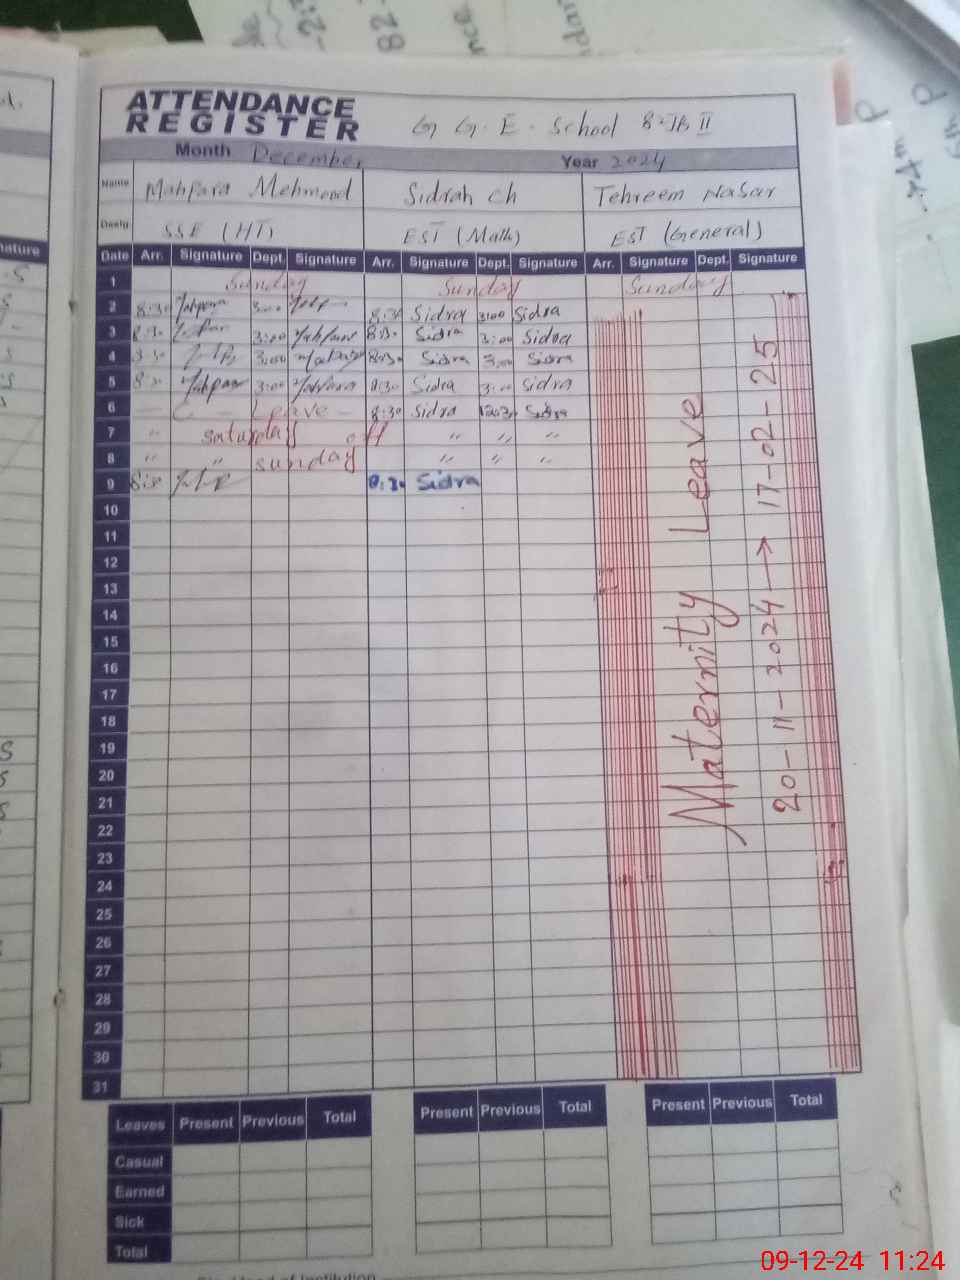 ATTENDANCE
REGISTER
G G. E. School 8-JB II
Month December Year 2024
Name Mahpara Mehmood Sidrah ch Tehreem Nasar
Desig SSE (HT) EST (Math) EST (General)
Date Arr. Signature Dept. Signature Arr. Signature Dept. Signature Arr. Signature Dept. Signature
1 Sunday Sunday Sunday
2 8:30 3:00 8:30 Sidra 3:00 Sidra
3 8:30 3:00 Mahpara 8:30 Sidra 3:00 Sidra
4 8:30 3:00 Mahpara 8:30 Sidra 3:00 Sidra
5 8:30 Mahpara 3:00 Mahpara 8:30 Sidra 3:00 Sidra
6 — C — Leave — 8:30 Sidra 12:30 Sidra
7 " saturday off " " "
8 " " sunday " " "
9 8:30 8:30 Sidra
10
11
12
13
14
15
16
17
18
19
20
21
22
23
24
25
26
27
28
29
30
31
Maternity Leave
20-11-2024 → 17-02-25
Leaves Present Previous Total Present Previous Total Present Previous Total
Casual
Earned
Sick
Total
Head of Institution
09-12-24 11:24